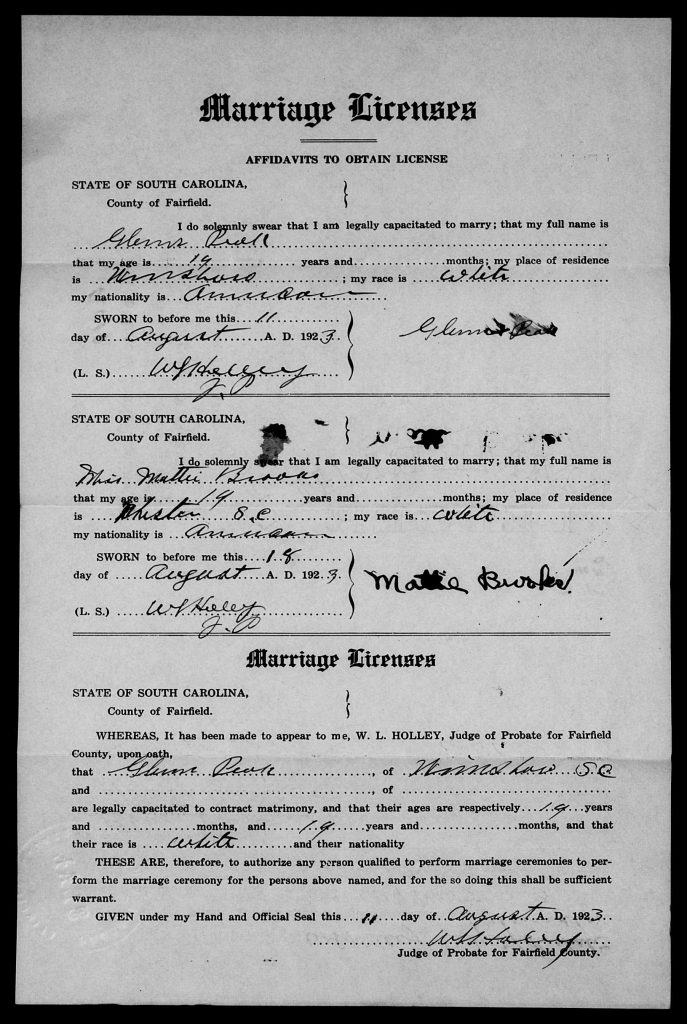 Marriage Licenses
AFFIDAVITS TO OBTAIN LICENSE
STATE OF SOUTH CAROLINA,
County of Fairfield.
I do solemnly swear that I am legally capacitated to marry; that my full name is
Glenn Peak
that my age is 19 years and months; my place of residence
is Winnsboro ; my race is white
my nationality is American
SWORN to before me this 11
day of August A. D. 1923
Glenn Peak
(L. S.) W L Holley
J. P
STATE OF SOUTH CAROLINA,
County of Fairfield.
I do solemnly swear that I am legally capacitated to marry; that my full name is
Miss Mattie Brooks
that my age is 19 years and months; my place of residence
is Chester S. C ; my race is white
my nationality is American
SWORN to before me this 18
day of August A. D. 1923.
Mattie Brooks
(L. S.) W L Holley
J. P
Marriage Licenses
STATE OF SOUTH CAROLINA,
County of Fairfield.
WHEREAS, It has been made to appear to me, W. L. HOLLEY, Judge of Probate for Fairfield
County, upon oath,
that Glenn Peak , of Winnsboro S C
and , of
are legally capacitated to contract matrimony, and that their ages are respectively 19 years
and months, and 19 years and months, and that
their race is white and their nationality
THESE ARE, therefore, to authorize any person qualified to perform marriage ceremonies to per-
form the marriage ceremony for the persons above named, and for the so doing this shall be sufficient
warrant.
GIVEN under my Hand and Official Seal this 11 day of August A. D. 1923.
W L Holley
Judge of Probate for Fairfield County.